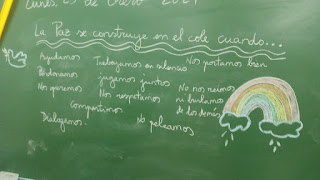 Lunes 25 de Enero 2021
La Paz se construye en el cole cuando...
Ayudamos Trabajamos en silencio Nos portamos bien
Perdonamos jugamos juntos No nos reimos
Nos queremos Nos respetamos ni burlamos
compartimos de los demás
Dialogamos. No peleamos